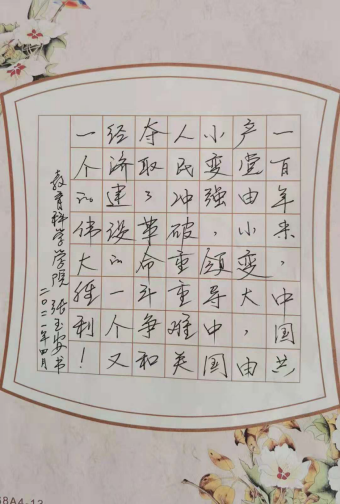 一百年来，中国共
产党由小变大，由
小变强，领导中国
人民冲破重重难关
夺取了革命斗争和
经济建设的一个又
一个的伟大胜利！
教育科学学院 张玉安书
二〇二一年四月
8A4-12